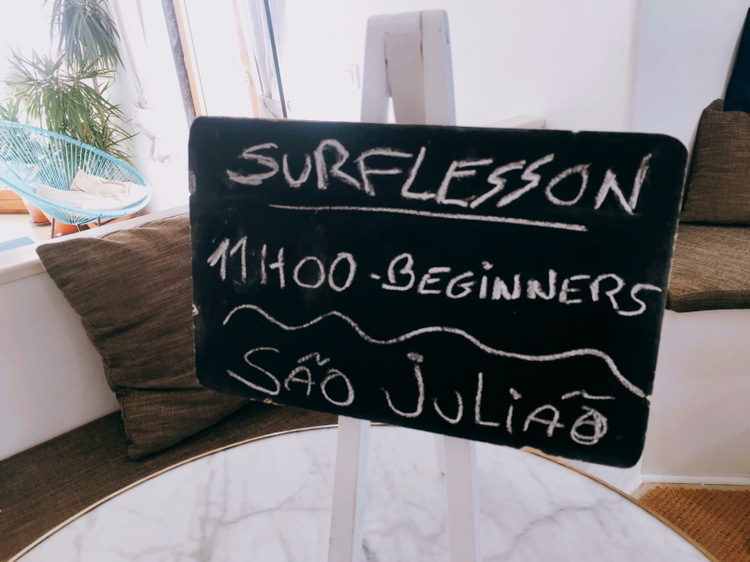 SURFLESSON
11H00 - BEGINNERS
SÃO JULIÃO